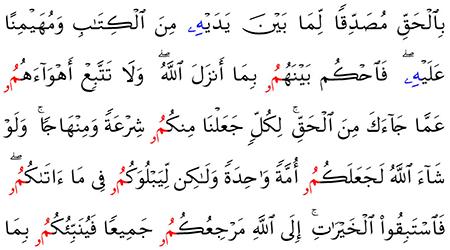 بِالْحَقِّ مُصَدِّقًا لِّمَا بَيْنَ يَدَيْهِۦ مِنَ الْكِتَٰبِ وَمُهَيْمِنًا
عَلَيْهِۦۖ فَاحْكُم بَيْنَهُمُۥ بِمَا أَنزَلَ اللَّهُۖ وَلَا تَتَّبِعْ أَهْوَآءَهُمُۥ
عَمَّا جَآءَكَ مِنَ الْحَقِّۚ لِكُلٍّ جَعَلْنَا مِنكُمُۥ شِرْعَةً وَمِنْهَاجًاۚ وَلَوْ
شَآءَ اللَّهُ لَجَعَلَكُمُۥ أُمَّةً وَٰحِدَةً وَلَٰكِن لِّيَبْلُوَكُمُۥ فِى مَا ءَاتَىٰكُمُۥۖ
فَاسْتَبِقُوا۟ الْخَيْرَٰتِۚ إِلَى اللَّهِ مَرْجِعُكُمُۥ جَمِيعًا فَيُنَبِّئُكُمُۥ بِمَا